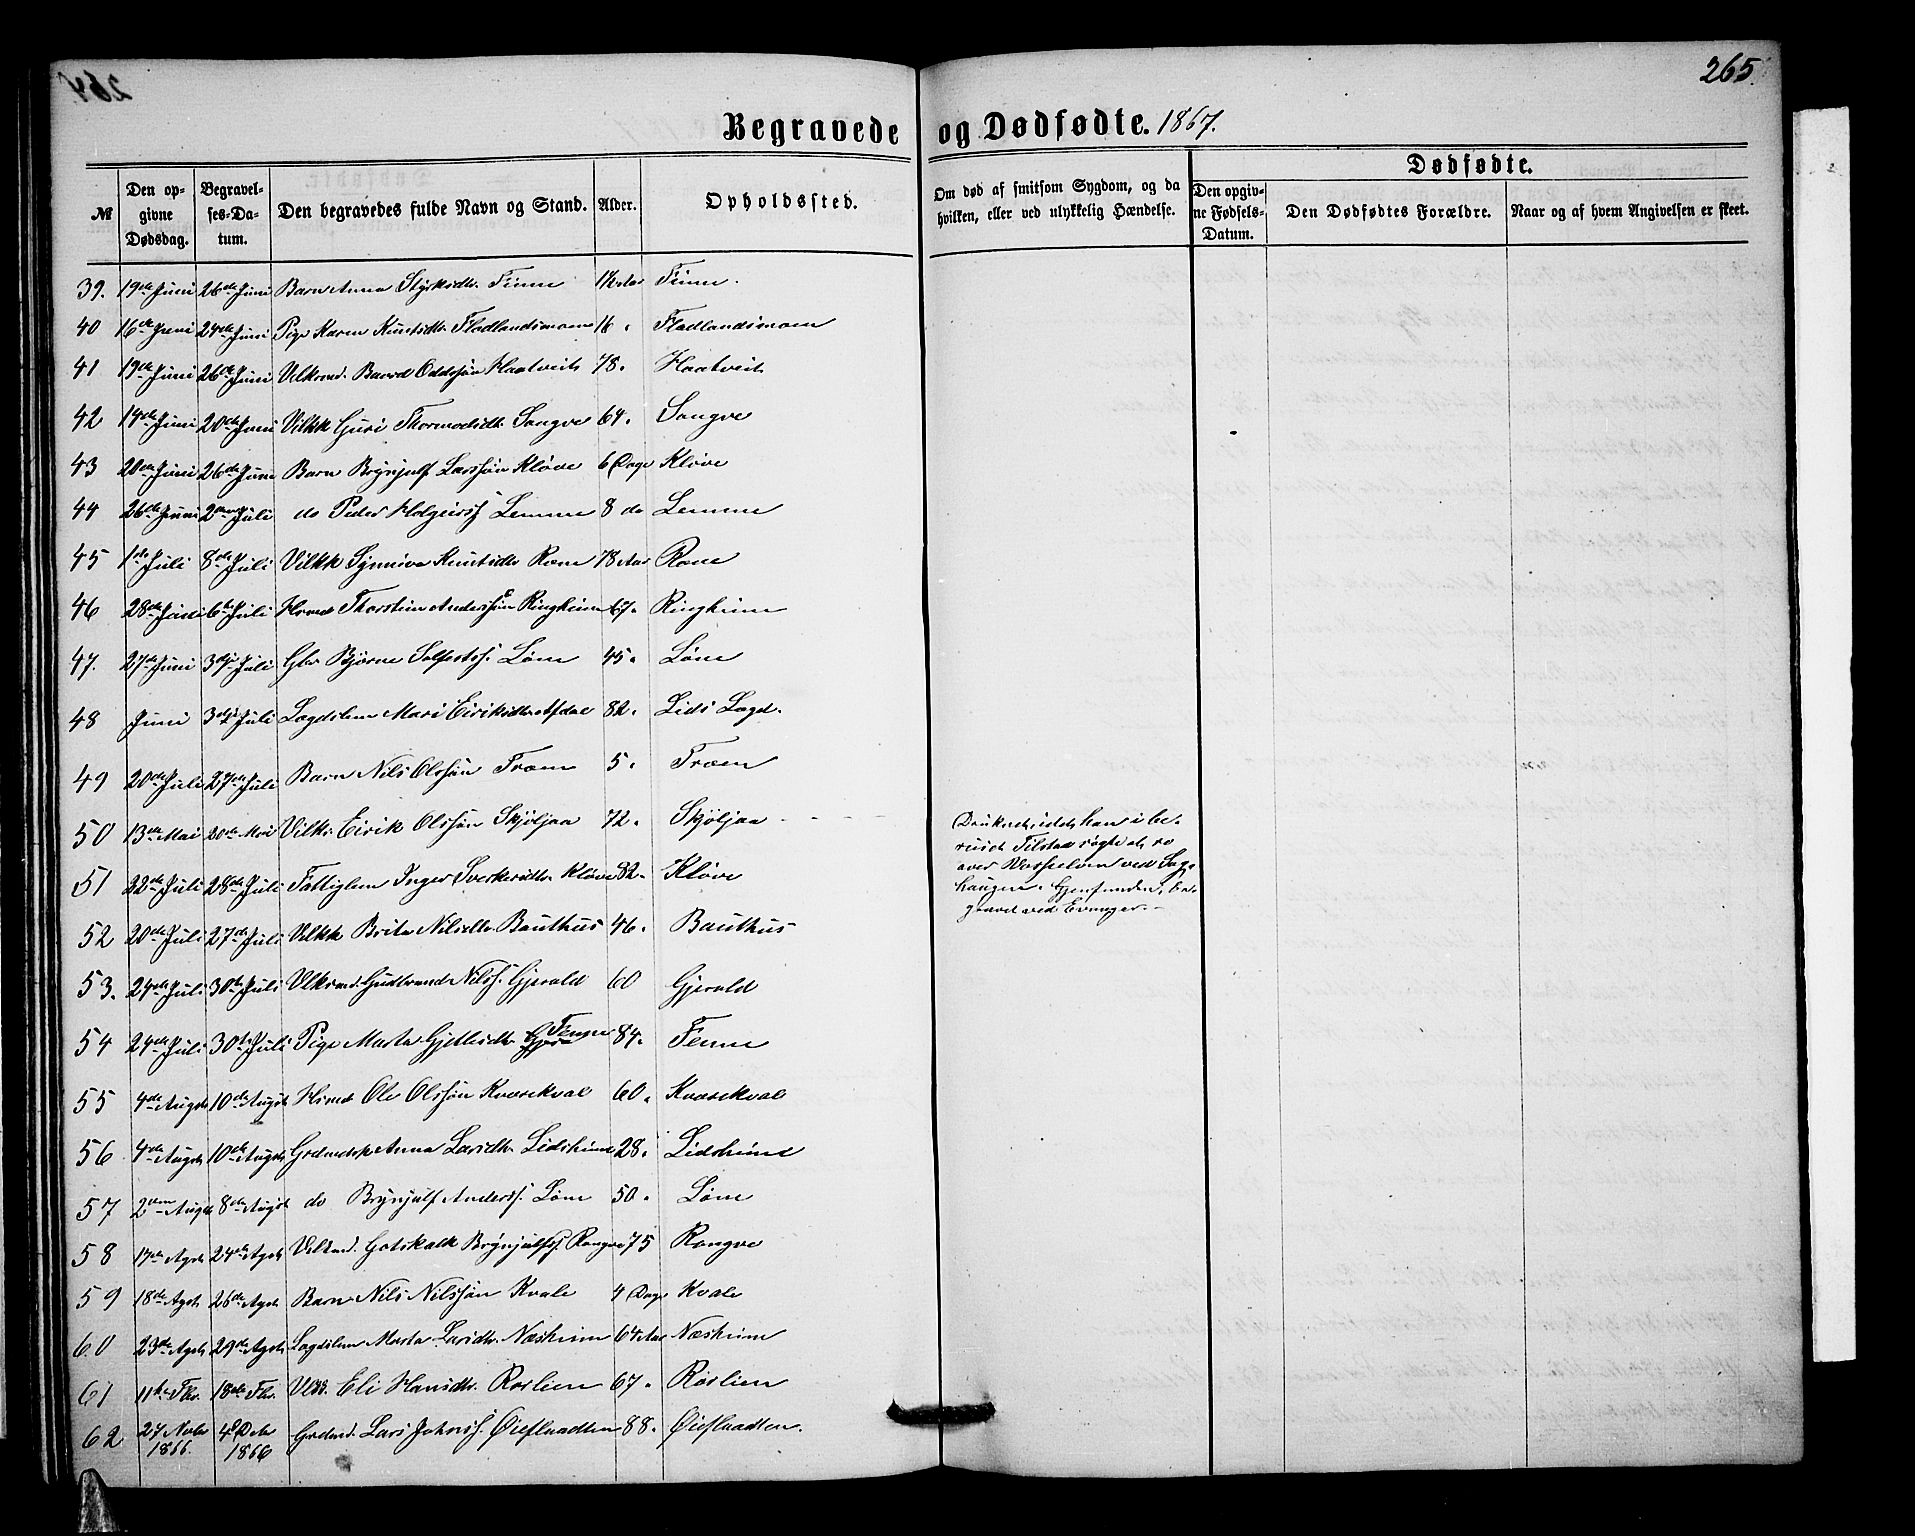 265.
Begravede og Dødfødte. 1867.
Dødfødte.
№ Den opgivne Dødsdag. Begravelses-Datum. Den begravedes fulde Navn og Stand. Alder. Opholdssted. Om død af smitsom Sygdom, og da hvilken, eller ved ulykkelig Hændelse. Den opgivne Fødsels-Datum. Den Dødfødtes Forældre. Naar og af hvem Angivelsen er skeet.
39. 19de Juni 26de Juni Barn Anna Styrksdtr. Finne Finne.
40 16de Juni 24de Juni Pige Karen Knutsdtr Fladlandsmoen 16. Fladlandsmoen
41 19de Juni 26de Juni Vilkmd. Baard Oddssøn Haatveit 78. Haatveit
42 14de Juni 20de Juni Vilkk Guri Thormodsdtr. Songve 64. Songve
43 20de Juni 26de Juni Barn Brynjulf Larssøn Kløve 6 Dage Kløve
44 26de Juni 2den Juli do Peder Holgerss. Lemme 8 do Lemme
45 1ste Juli 8de Juli Vilkk Synniva Knutsdtr Rone 78 Aar Rone
46 28de Juni 6te Juli Hsmd Thorstein Anderssøn Ringheim 67. Ringheim
47. 27de Juni 3die Juli Gbr Bjørne Solfestss. Løne 45. Løne
48 Juni 3die Juli Lægdslem Mari Eiriksdtr Afdal 82. Lids Lægd.
49 20de Juli 27de Juli Barn Nils Olssøn Træen 5. Træen
50 13de Mai 20de Mai Vilkr. Eirik Olssøn Skjøljaa 72. Skjøljaa
Druknet, idet han i be-
ruset Tilstad søgte at ro
over Vosseelven ved Sag-
haugen. Gjenfunden, be-
gravet ved Evanger.
51 22de Juli 28de Juli Fattiglem Inger Sverkesdtr Kløve 82. Kløve
52 20de Juli 27de Juli Vilkk Brita Nilsdtr. Bauthus 46. Bauthus
53. 24de Juli 30te Juli Vilkmd. Gudbrand Nilss. Gjerald 60 Gjerald
54 24de Juli 30te Juli Pige Marta Gjetlesdtr. Fenne 84. Fenne
55 4de Augst 10de Augst Hsmd Ole Olssøn Kvarekval 60. Kvarekval
56 4de Augst 10de Augst Grdmdsk Anna Larsdtr. Lidsheim 28. Lidsheim
57 2den Augst 8de Augst do Brynjulf Anderss. Løne 50. Løne
58 17de Agst 24de Agst Vilkmd. Gotskalk Brynjulfss. Rongve 75 Rongve
59 18de Agst 26de Agst Barn Nils Nilssøn Kvale 4 Dage Kvale
60 23de Agst 29de Agst Lægdslem Marta Larsdtr. Næsheim 64 Aar Næsheim
61 11te 18de Eli Hansdtr. Røslien 67. Røslien
62 27 Novbr 1866. 4de Debr 1866 Grdmd. Lars Johnss. Øieflaadten 88. Øieflaadten.